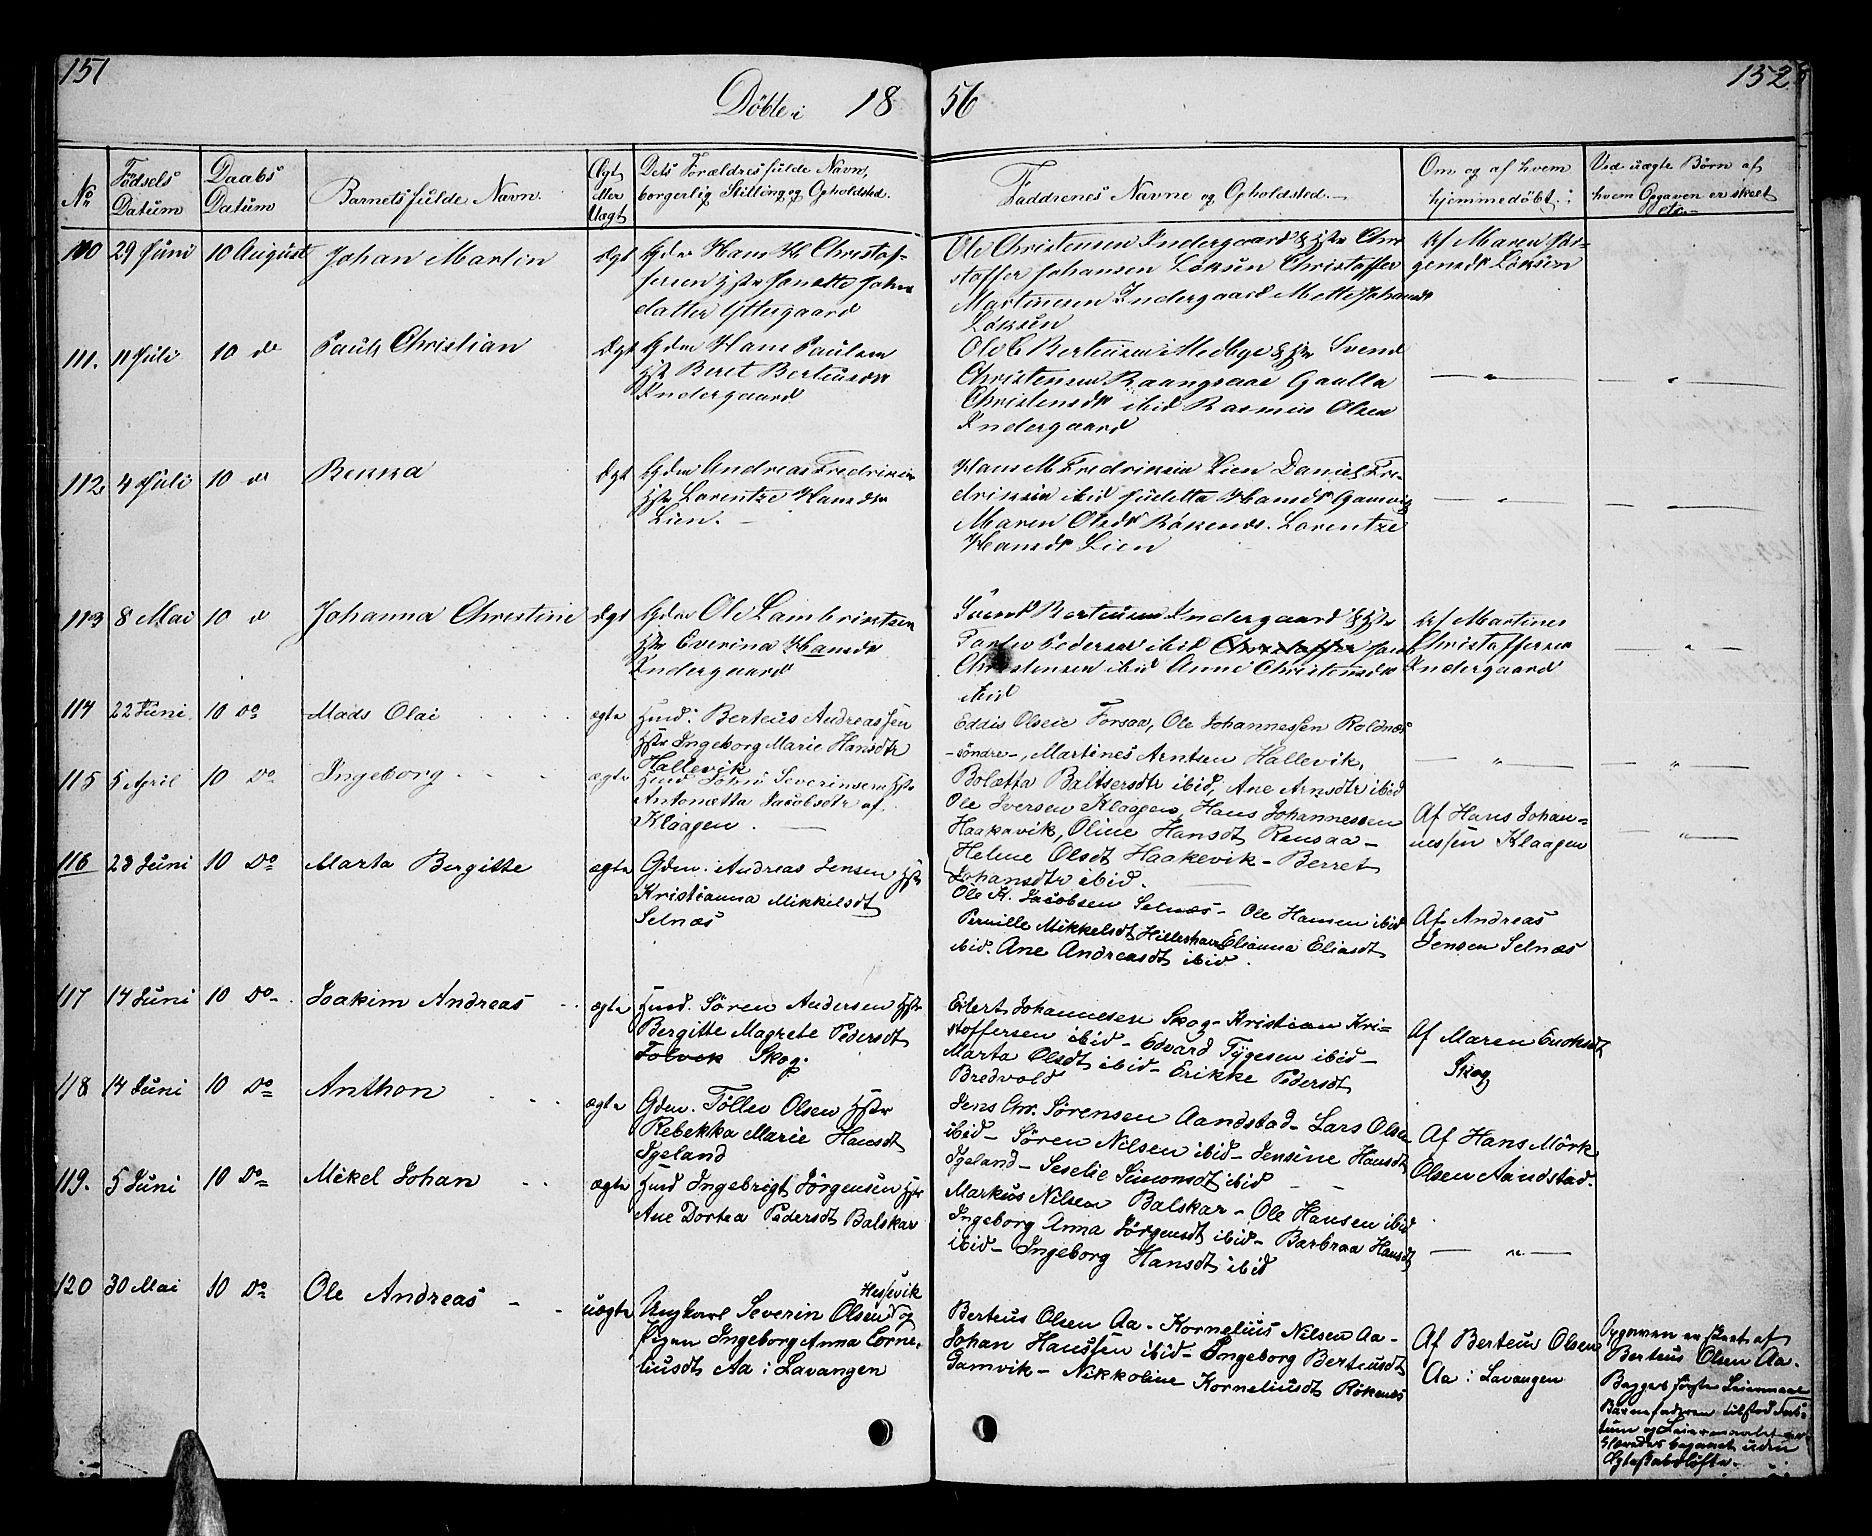 151
152
Döbte i 18 56
No
Födsels Datum
Daabs Datum
Barnets fulde Navn.
Ægt Eller Uægt
Dets Forældres fulde Navn, borgerlig Stilling og Opholdsted.
Faddrenes Navne og Opholdsted.
Om og af hvem hjemmedöbt.
Ved uægte Börn af hvem Opgaven er skeet etc.
110 29 Juni 10 August Johan Martin Ægt Gdm Hans H Christof-
fersen Hstr Jonetta John
datter Yttergaard
Ole Christensen Indergaard & Hstr Chri
stoffer Johansen Löksen Christoffer
Martinesen Indergaard Mette Johansdr
Löksen
Af Maren Jör-
gensdr Löksen
111. 11 Juli 10 do Paul Christian Ægt Gdm Hans Paulsen
Hstr Beret Berteusdr
Indergaard
Ole C Berteusen Medbye & Hstr Svend
Christensen Raangsaae Gunilla
Christensdr ibid Rasmus Olsen
Indergaard
— " —
— " —
112. 4 Juli 10 do Benna Ægt Gdm Andreas Fredriksen
Hstr Lorentze Hansdr
Lien. —
Hans M Fredriksen Lien Daniel Fre-
driksen ibid Juletta Hansdr Gamvig
Maren Olsdr Rökenes. Lorentze
Hansdr Lien
— " —
— " —
113 8 Mai 10 d Johanna Christine Ægt Gdm Ole Lambrintsen
Hstr Everina Hansdr
Indergaard
Svend Berteusen Indergaard & Hstr
Pedersen ibid Christoffer
Christensen ibid Anne Christensdr
ibid
Af Martines
Christoffersen
Indergaard
— " —
114 22 Juni 10 Do Mads Olai ægte Huusd: Berteus Andreassen
Hstr Ingeborg Marie Hansdtr
Hallevik
Eddis Olseie Forsaa, Ole Johannessen Roldnæs
söndre, Martines Arntsen Hallevik,
Bolætta Baltsersdtr ibid, Ane Arnsdtr ibid
— " —
— " —
115 5 April 10 Do Ingeborg ægte Huusd John Severinsen Hstr
Antonætta Jacobsdtr af
Klaagen. —
Ole Iversen Klaagen, Hans Johannessen
Haakavik, Oline Hansdt Rensaa —
Helene Olsdt Haakevik — Berret
Johansdtr ibid.
Af Hans Johan-
nessen Klaagen
— " —
116 23 Juni 10 Do Marta Bergitte ægte Gdm. Andreas Jensen Hstr
Kristianna Mikkelsdt
Selnæs
Ole K. Jacobsen Selnæs — Ole Hansen ibid
Pernille Mikkelsdt Hilleshavn Elianna Eliasdt
ibid. Ane Andreasdt ibid.
Af Andreas
Jensen Selnæs
117 14 Juni 10 Do Joakim Andreas ægte Husd. Sören Andersen Hstr
Bergitte Magrete Pedersdt
Folvik Skog.
Eilert Johannesen Skog — Kristian Kri-
stoffersen ibid — Edvard Tygesen ibid —
Marta Olsdt ibid — Erikke Pedersdt
Bredvold
Af Maren Enoksdt
Skog
118 14 Juni 10 Do Anthon ægte Gdm. Töllev Olsen Hstr
Rebekka Marie Hansdt
Igeland
Jens Chr. Sörensen Aandstad — Lars Olsen
ibid — Sören Nilsen ibid — Jensine Hansdt
Igeland — Seselie Simonsdt ibid
Af Hans Mörk
Olsen Aandstad.
119. 5 Juni 10 Do Mikel Johan ægte Husd Ingebrigt Jörgensen Hstr
Ane Dortea Pedersdt Balskar
Markus Nilsen Balskar — Ole Hansen ibid
Ingeborg Anna Jörgensdt ibid — Barbraa Hansdt
ibid — Ingeborg Hansdt ibid
— " —
120 30 Mai 10 Do Ole Andreas uægte Ungkarl Severin Olsen Hessevik og
Pigen Ingeborg Anna Corne-
liusdt Aa i Lavangen
Berteus Olsen Aa — Kornelius Nilsen Aa —
Johan Hanssen ibid — Ingeborg Berteusdt
Gamvik — Nikkoline Korneliusdt Rökenes
Af Berteus Olsen
Aa i Lavangen
Opgaven er skeet af
Berteus Olsen Aa.
Begges förste Leiermaal
Barnefaderen tilstod Fac-
tum og Leiermaalet
begaaet uden
Ægteskabslöfte.